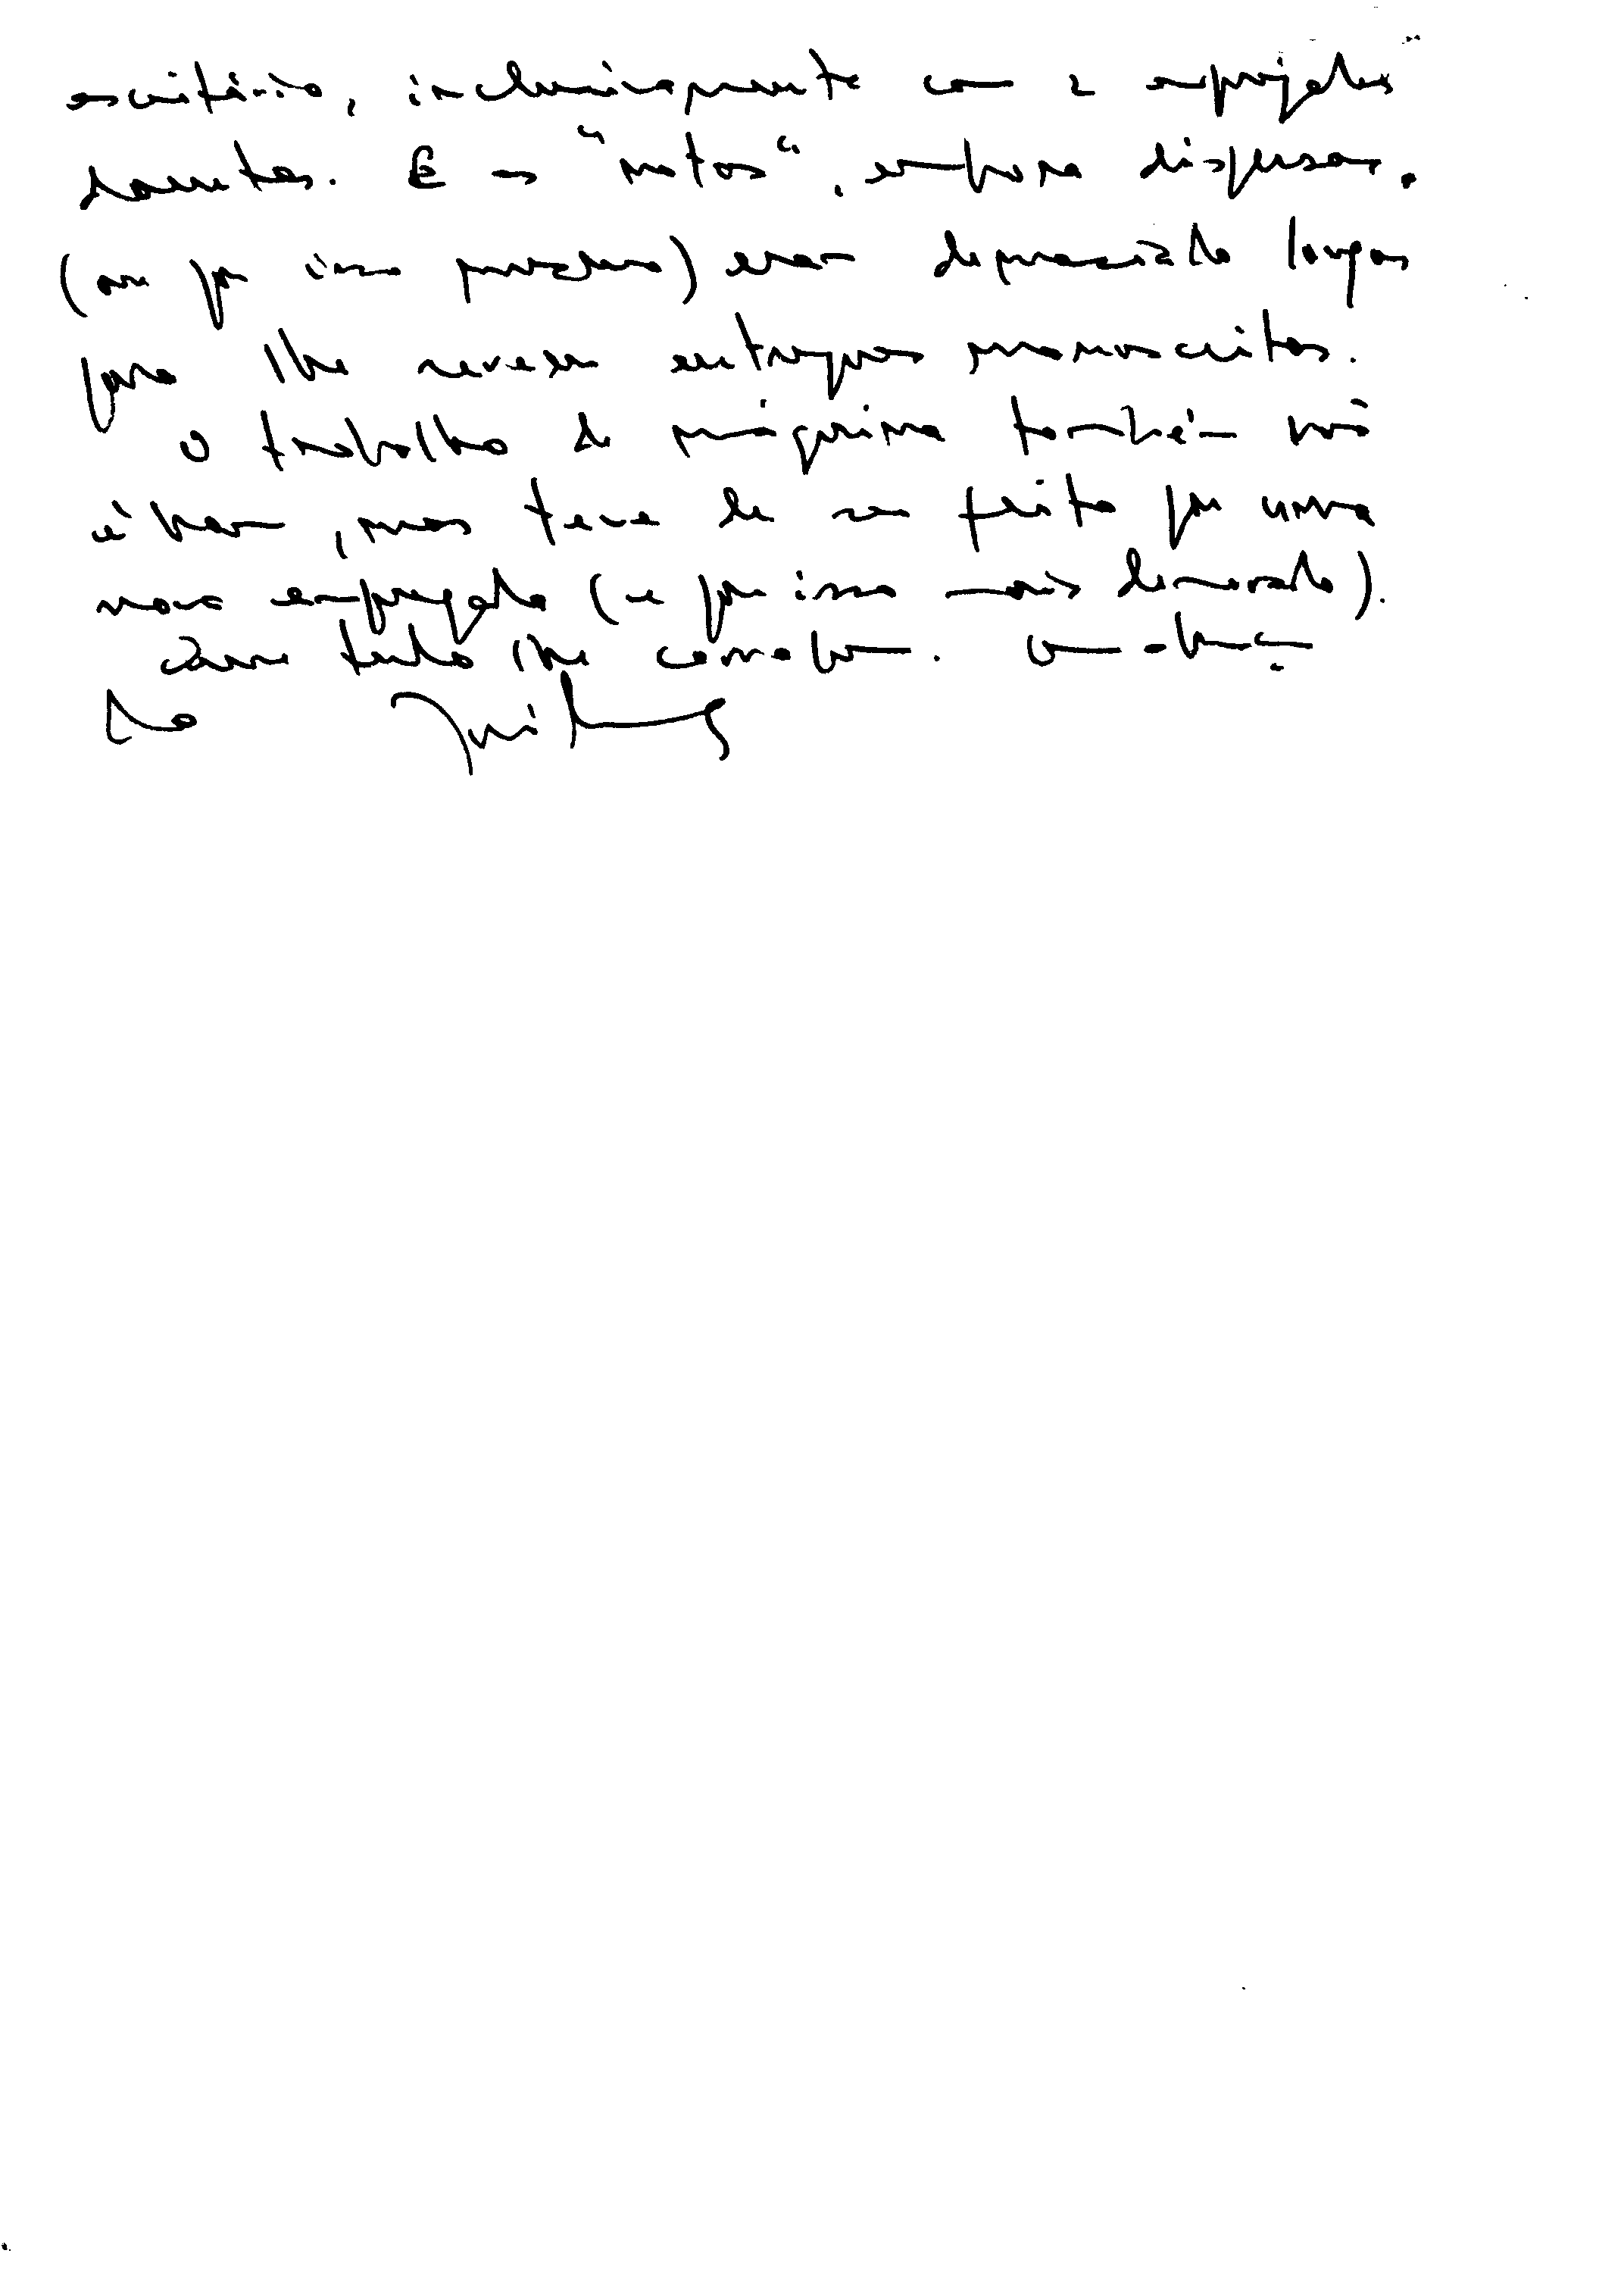 escritório, inclusivamente com a empregada
doente. E as "notas", embora dispersas.
(ou por isso mesmo) eram demasiado longas
para lhe serem entregues manuscritas.
O trabalho de máquina também não
é bom, mas teve de ser feito por uma
nova empregada (e por isso mais demorado).
Que tudo lhe corra bem. Um abraço
do